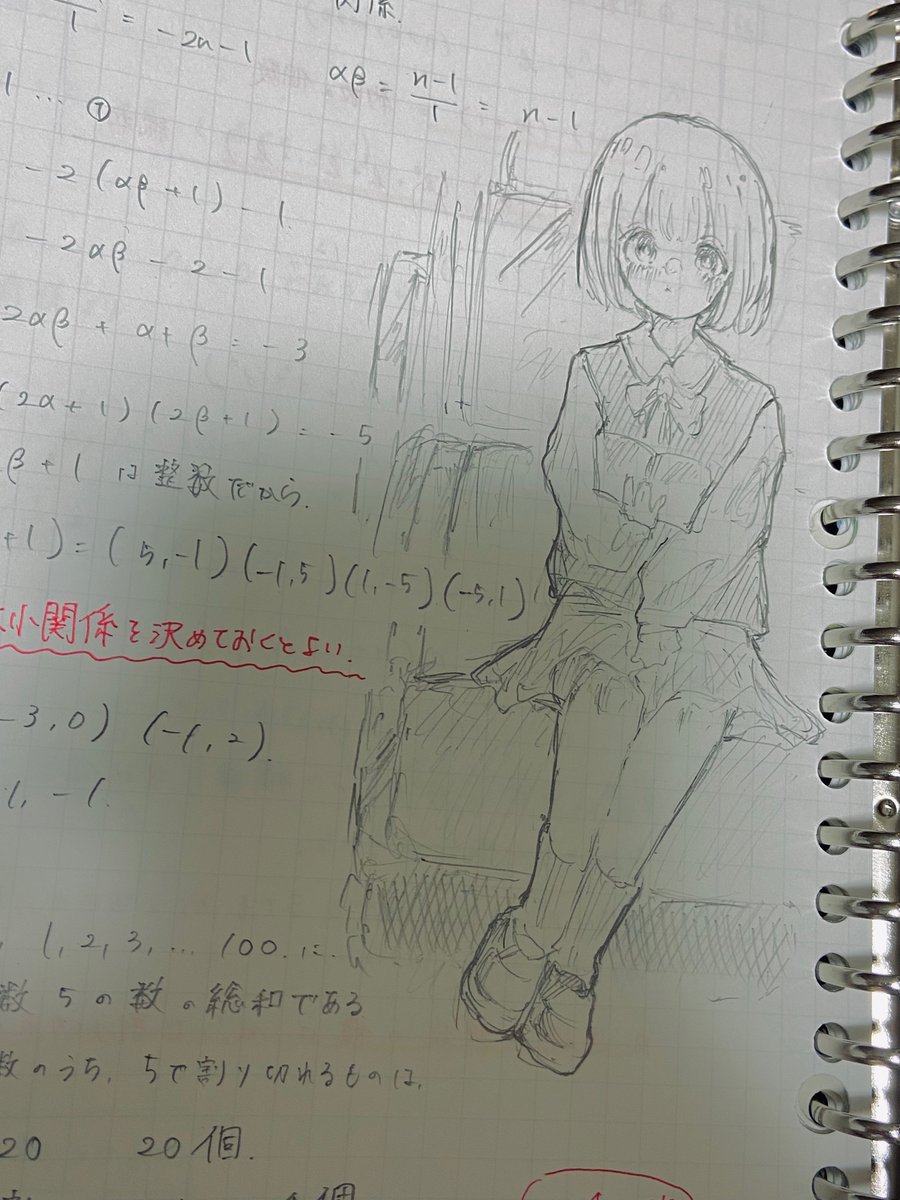 関係.
/1 = -2n-1
αβ = n-1/1 = n-1
1 … ①
-2(αβ+1)-1
-2αβ-2-1
2αβ+α+β=-3
(2α+1)(2β+1)=-5
β+1は整数だから.
+1)=(5,-1)(-1,5)(1,-5)(-5,1)
小関係を決めておくとよい.
-3,0)(-1,2).
1,-1.
1,2,3,… 100.に
数5の数の総和である
数のうち,5で割り切れるものは,
20 20個.